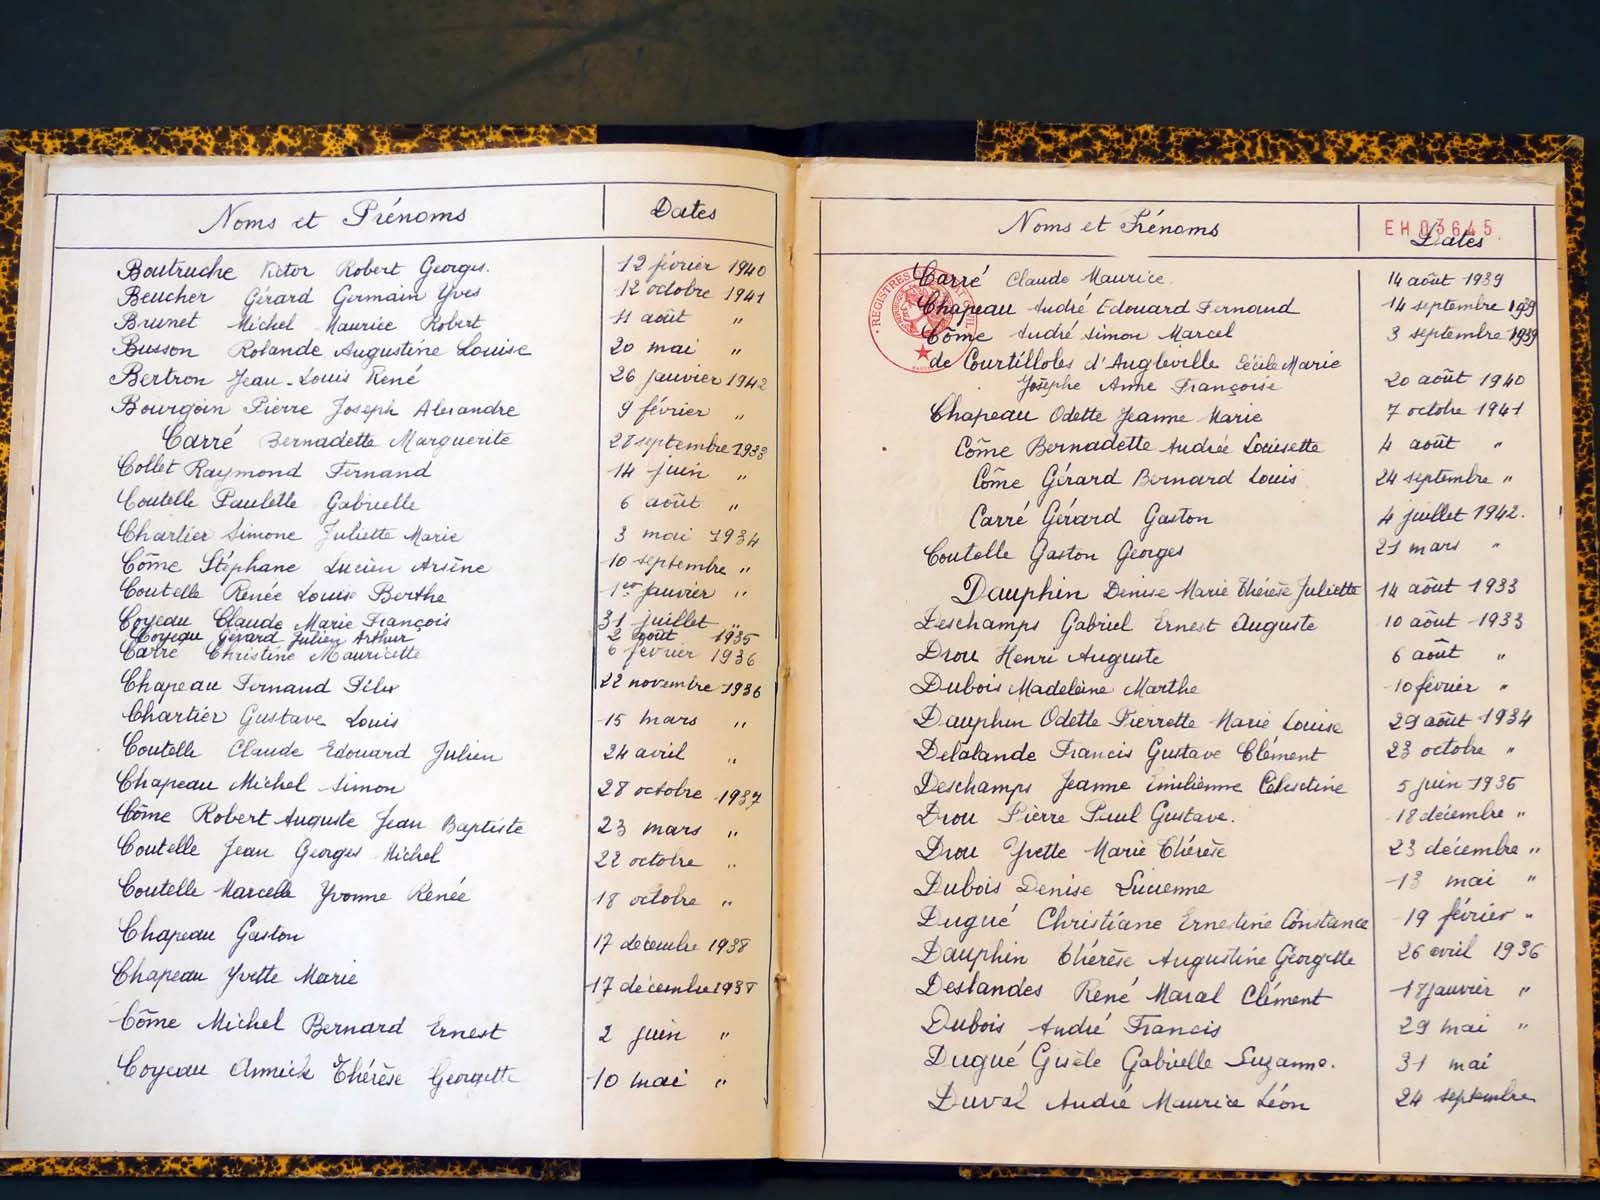 Noms et Prénoms Dates
Boutruche Victor Robert Georges. 12 février 1940
Beucher Gérard Germain Yves 12 octobre 1941
Brunet Michel Maurice Robert 11 août "
Busson Rolande Augustine Louise 20 mai "
Bertron Jean-Louis René 26 janvier 1942
Bourgoin Pierre Joseph Alexandre 9 février "
Carré Bernadette Marguerite septembre 1933
Collet Raymond Fernand 14 juin "
Coutelle Paulette Gabrielle 6 août "
Chartier Simone Juliette Marie 3 mai 1934
Côme Stéphane Lucien Arsène 10 septembre "
Coutelle Renée Louise Berthe 1er janvier "
Coyeau Claude Marie François 31 juillet "
Coyeau Gérard Julien Arthur 2 août 1935
Carré Christine Mauricette 6 février 1936
Chapeau Fernand Félix 22 novembre 1936
Chartier Gustave Louis 15 mars "
Coutelle Claude Edouard Julien 24 avril "
Chapeau Michel Simon 28 octobre 1937
Côme Robert Auguste Jean Baptiste 23 mars "
Coutelle Jean Georges Michel 22 octobre "
Coutelle Marcelle Yvonne Renée 18 octobre "
Chapeau Gaston 17 décembre 1938
Chapeau Yvette Marie 17 décembre 1938
Côme Michel Bernard Ernest 2 juin "
Coyeau Annick Thérèse Georgette 10 mai "
Noms et Prénoms Dates
EH03645
REGISTRES
Carré Claude Maurice 14 août 1939
Chapeau André Edouard Fernand 14 septembre 1939
Côme André Simon Marcel 3 septembre 1939
de Courtilloles d'Angleville Cécile Marie
Josèphe Anne Françoise 20 août 1940
Chapeau Odette Jeanne Marie 7 octobre 1941
Côme Bernadette Andrée Louisette 4 août "
Côme Gérard Bernard Louis 24 septembre "
Carré Gérard Gaston 4 juillet 1942.
Coutelle Gaston Georges 21 mars "
Dauphin Denise Marie Thérèse Juliette 14 août 1933
Deschamps Gabriel Ernest Auguste 10 août 1933
Drou Henri Auguste 6 août "
Dubois Madeleine Marthe 10 février "
Dauphin Odette Pierrette Marie Louise 29 août 1934
Delalande Francis Gustave Clément 23 octobre "
Deschamps Jeanne Emilienne Célestine 5 juin 1935
Drou Pierre Paul Gustave. 18 décembre "
Drou Yvette Marie Thérèse 23 décembre "
Dubois Denise Lucienne 13 mai "
Dugué Christiane Ernestine Constance 19 février "
Dauphin Thérèse Augustine Georgette 26 avril 1936
Deslandes René Clément janvier "
Dubois André Francis 29 mai "
Dugué Gisèle Gabrielle Suzanne. 31 mai
Duval André Maurice Léon 24 septembre